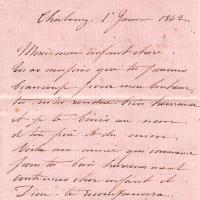 Cherbourg. 1er Janvier 1862.
Merci mon enfant chère.
tu as compris que tu pouvais
beaucoup pour mon bonheur,
tu as su rendre bien heureuse
et je te bénis au nom
de ton père & du mien.
Voilà une année qui commence
pour toi bien heureusement
continues chère enfant et
Dieu te récompensera.